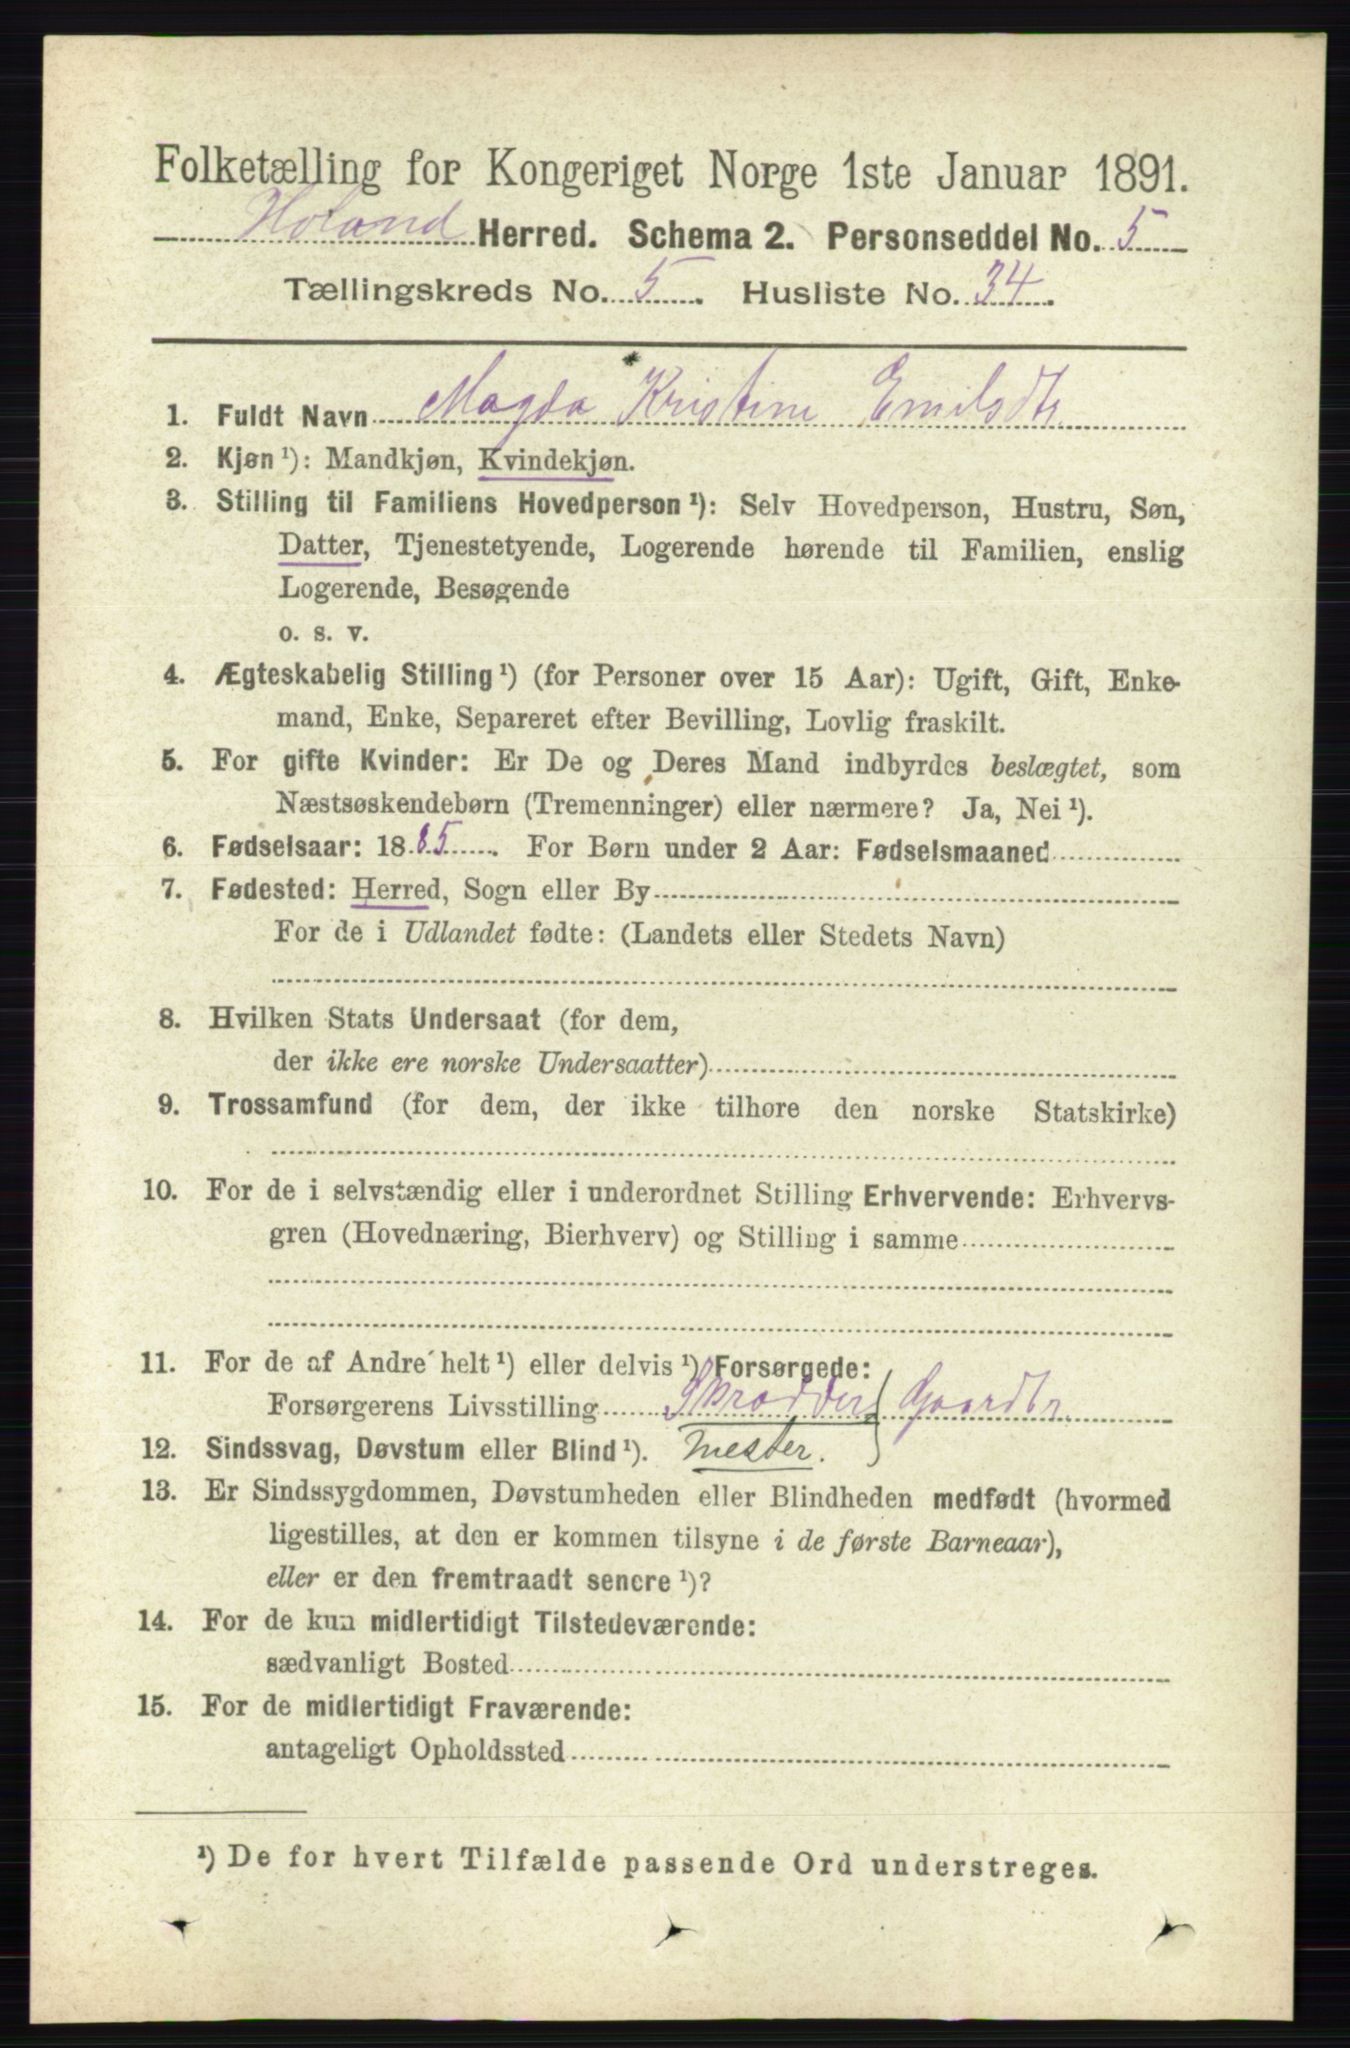 Folketælling for Kongeriget Norge 1ste Januar 1891.
Høland Herred. Schema 2. Personseddel No. 5
Tællingskreds No. 5. Husliste No. 34.
1. Fuldt Navn Magda Kristine Emilsdtr.
2. Kjøn ¹): Mandkjøn, Kvindekjøn.
3. Stilling til Familiens Hovedperson ¹): Selv Hovedperson, Hustru, Søn,
Datter, Tjenestetyende, Logerende hørende til Familien, enslig
Logerende, Besøgende
o. s. v.
4. Ægteskabelig Stilling ¹) (for Personer over 15 Aar): Ugift, Gift, Enke-
mand, Enke, Separeret efter Bevilling, Lovlig fraskilt.
5. For gifte Kvinder: Er De og Deres Mand indbyrdes beslægtet, som
Næstsøskendebørn (Tremenninger) eller nærmere? Ja, Nei ¹).
6. Fødselsaar: 1885. For Børn under 2 Aar: Fødselsmaaned
7. Fødested: Herred, Sogn eller By
For de i Udlandet fødte: (Landets eller Stedets Navn)
8. Hvilken Stats Undersaat (for dem,
der ikke ere norske Undersaatter)
9. Trossamfund (for dem, der ikke tilhøre den norske Statskirke)
10. For de i selvstændig eller i underordnet Stilling Erhvervende: Erhvervs-
gren (Hovednæring, Bierhverv) og Stilling i samme
11. For de af Andre helt ¹) eller delvis ¹) Forsørgede:
Forsørgerens Livsstilling Skrædder Gaardbr.
12. Sindssvag, Døvstum eller Blind ¹). mester.
13. Er Sindssygdommen, Døvstumheden eller Blindheden medfødt (hvormed
ligestilles, at den er kommen tilsyne i de første Barneaar),
eller er den fremtraadt senere ¹)?
14. For de kun midlertidigt Tilstedeværende:
sædvanligt Bosted
15. For de midlertidigt Fraværende:
antageligt Opholdssted
¹) De for hvert Tilfælde passende Ord understreges.